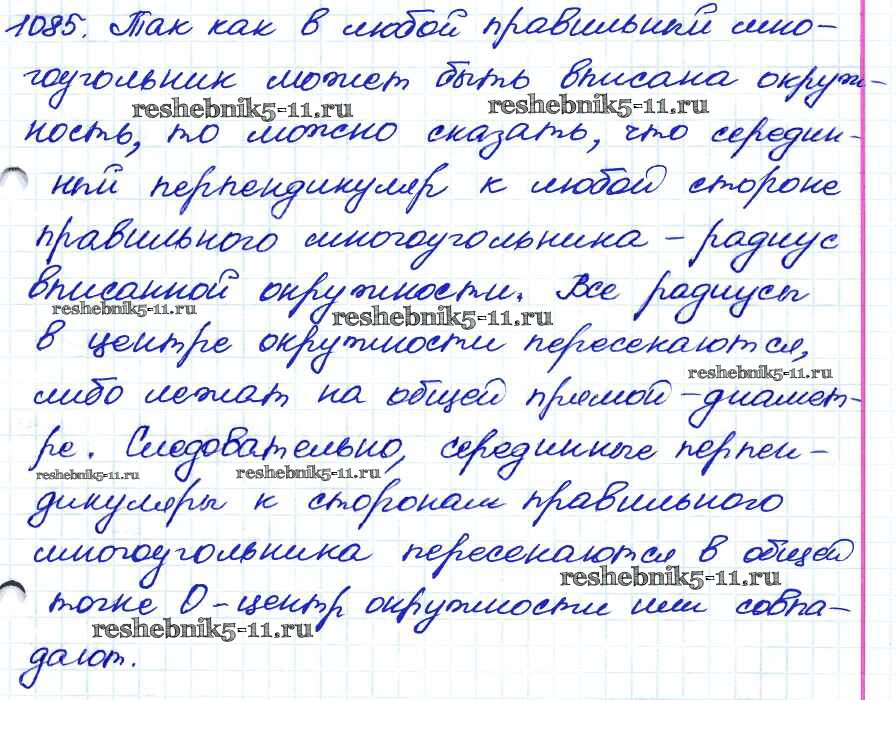 1085. Так как в любой правильный мно-
гоугольник может быть вписана окруж-
reshebnik5-11.ru reshebnik5-11.ru
ность, то можно сказать, что середин-
ный перпендикуляр к любой стороне
правильного многоугольника - радиус
вписанной окружности. Все радиусы
reshebnik5-11.ru reshebnik5-11.ru
в центре окружности пересекаются,
reshebnik5-11.ru
либо лежат на общей прямой - диамет-
ре. Следовательно, серединные перпен-
reshebnik5-11.ru reshebnik5-11.ru
дикуляры к сторонам правильного
многоугольника пересекаются в общей
reshebnik5-11.ru
точке О - центр окружности или совпа-
reshebnik5-11.ru
дают.